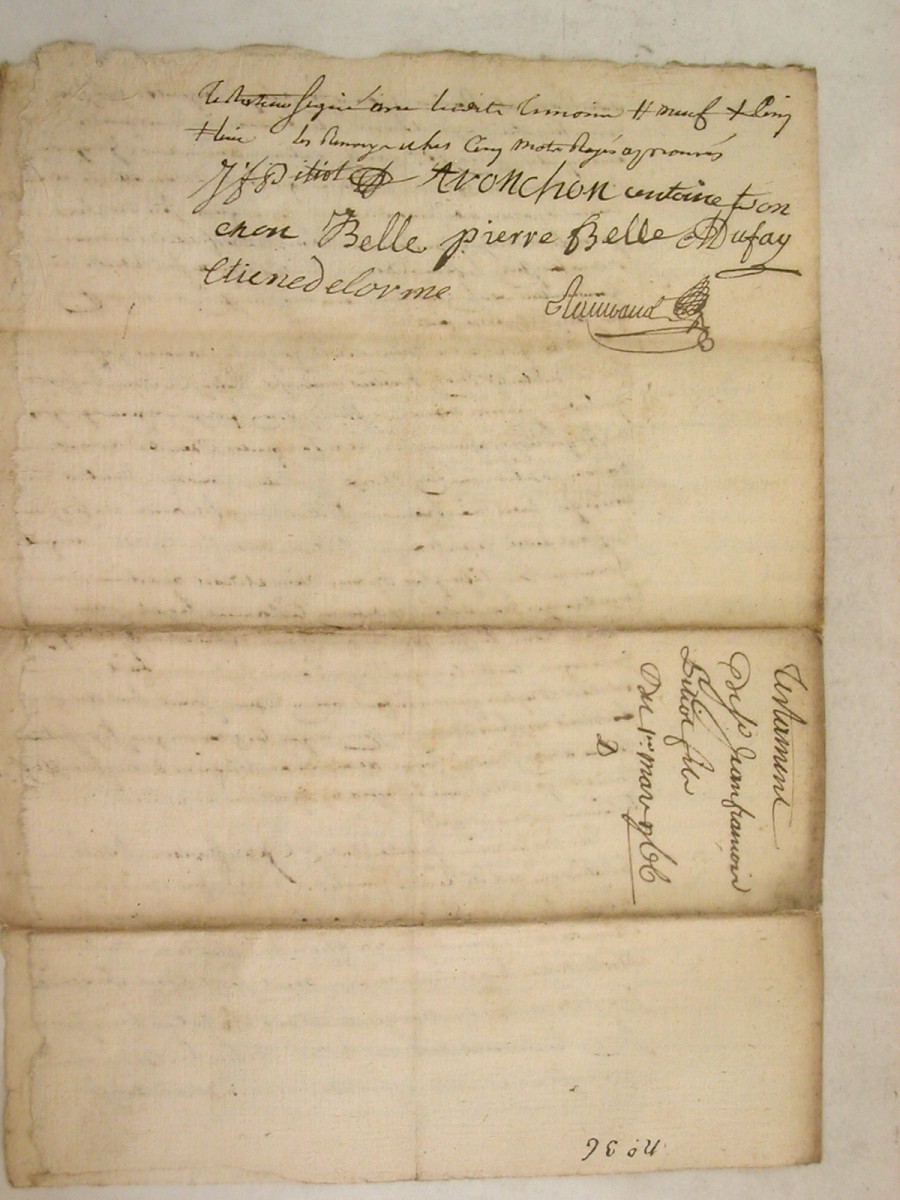 testateur signé avec lesdits temoins # neuf + Cinq
+ les Renvoys Cinq mots Rayés approuvés
J f Pitiot A tronchon antoine tron
chon Belle pierre Belle Dufay
Etienedelorme
Testament
de sr Jean francois
Pitiot fils
Du 1er mars
D
No 36